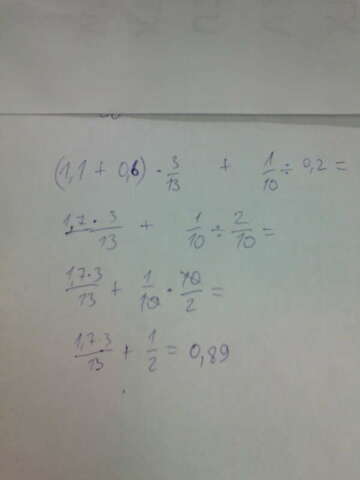 (1,1 + 0,6) · 3/13 + 1/10 ÷ 0,2 =
1,7 · 3/13 + 1/10 ÷ 2/10 =
1,7·3/13 + 1/10 · 10/2 =
1,7·3/13 + 1/2 = 0,89